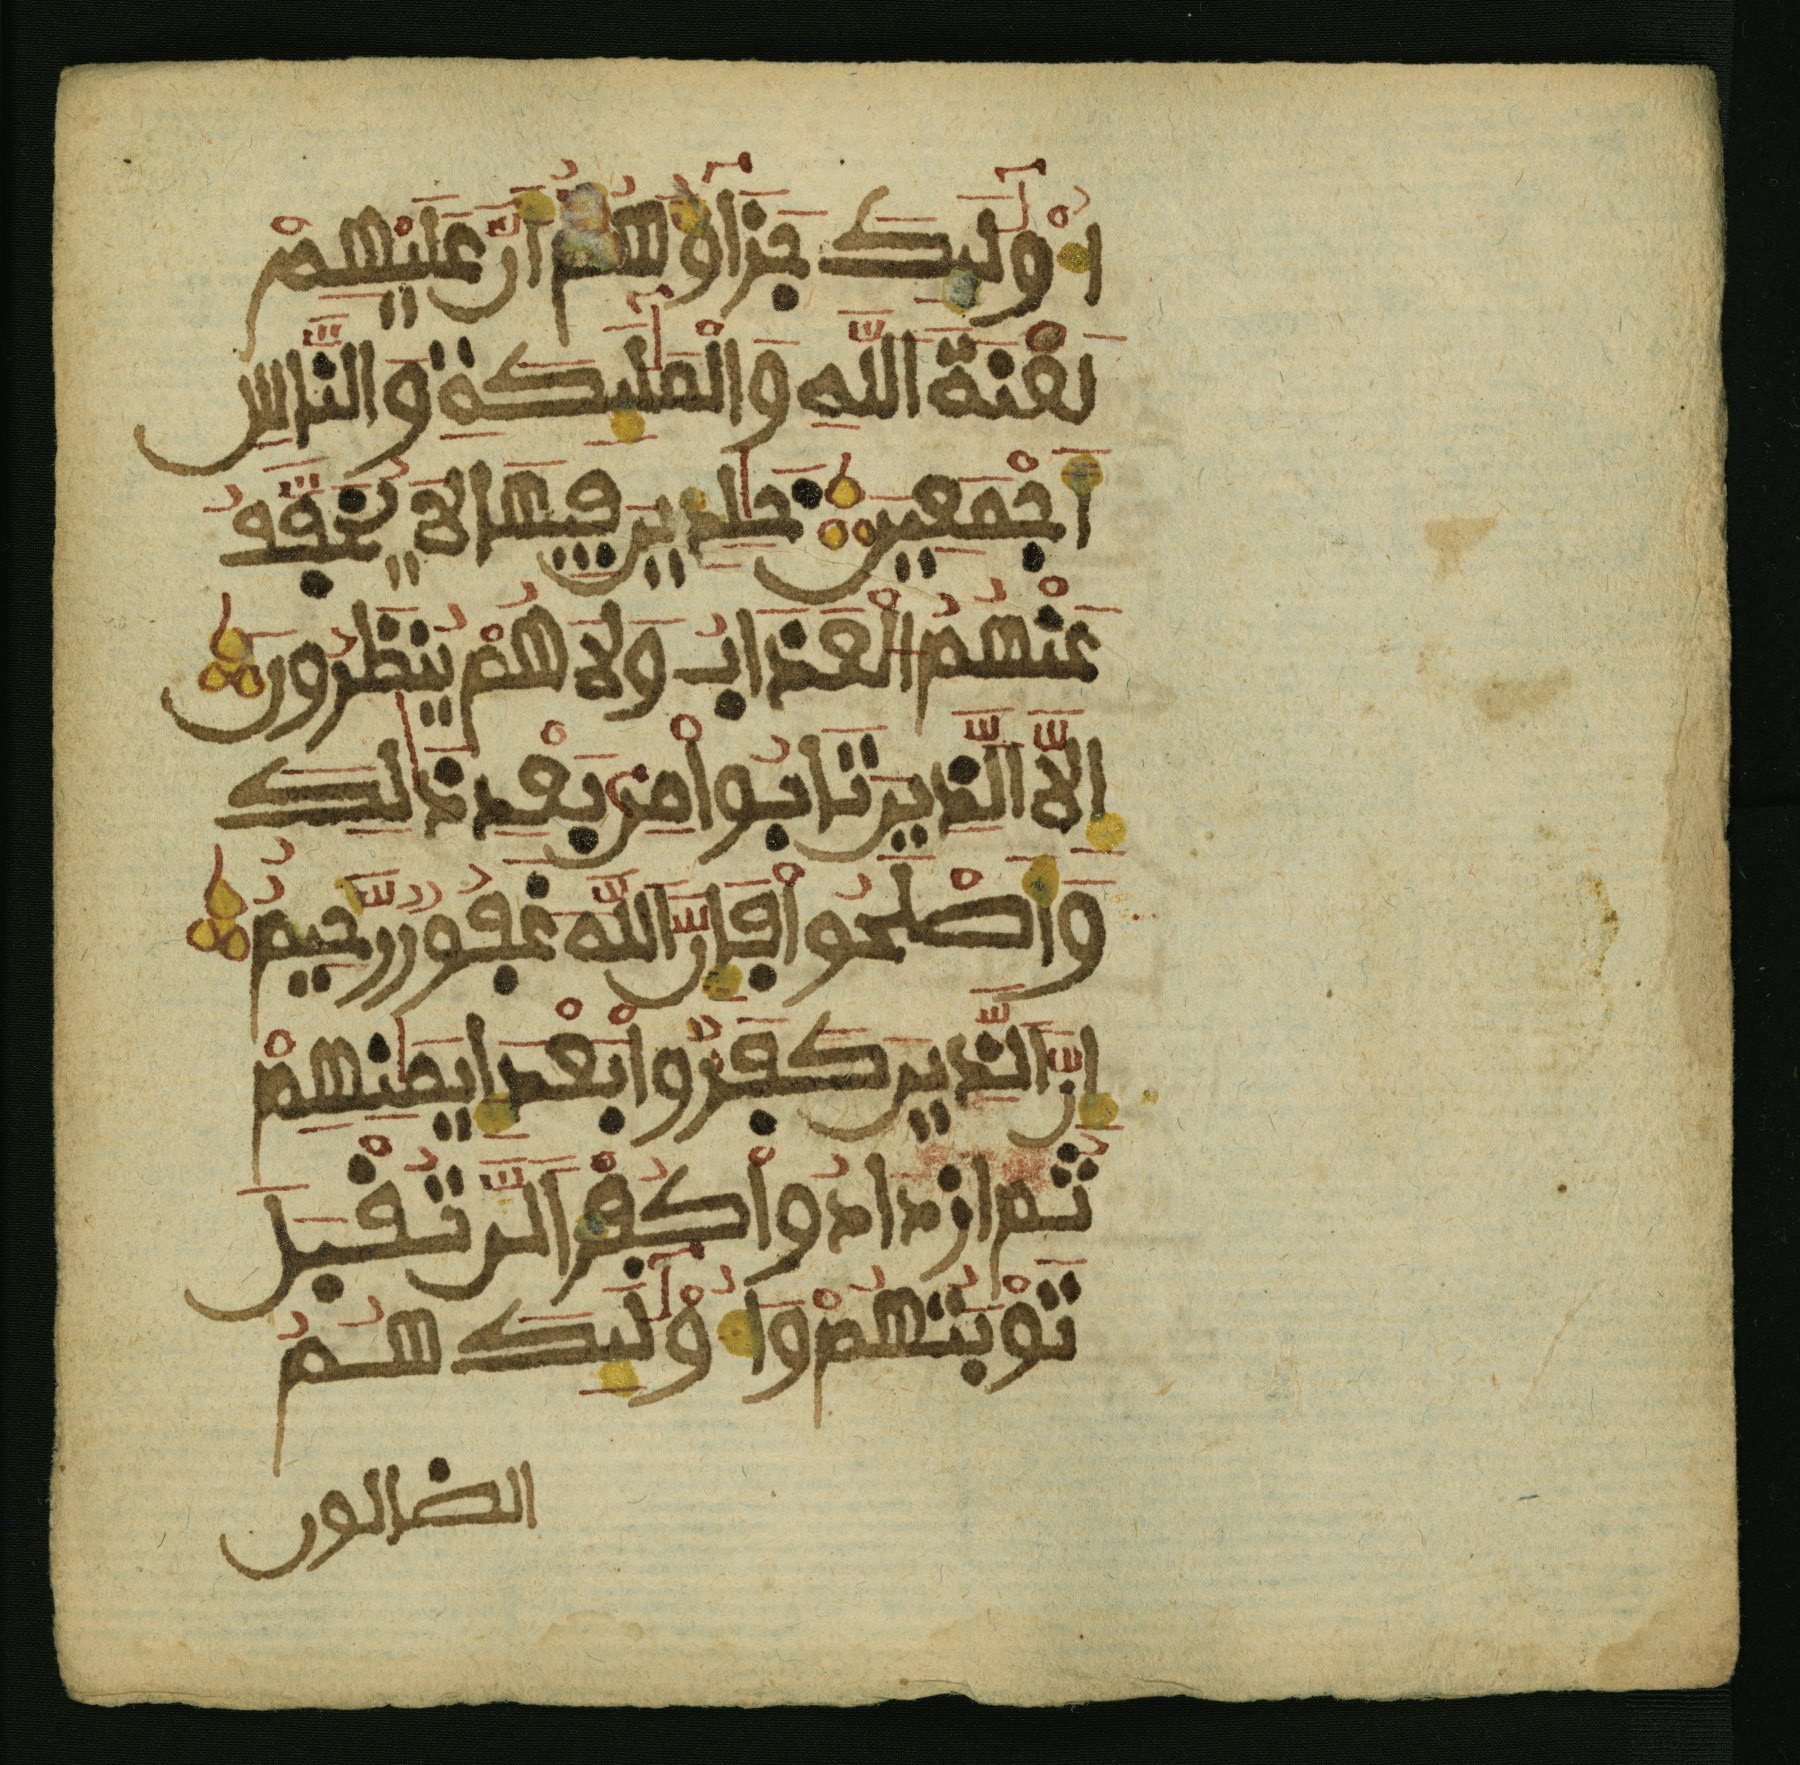 اُوْلَٰٓئِكَ جَزَآؤُهُمُۥٓ أَنَّ عَلَيْهِمْ
لَعْنَةَ اَ۬للَّهِ وَالْمَلَٰٓئِكَةِ وَالنَّاسِ
أَجْمَعِينَ خَٰلِدِينَ فِيهَا لَا يُخَفَّفُ
عَنْهُمُ الْعَذَابُ وَلَا هُمْ يُنظَرُونَ
إِلَّا الَّذِينَ تَابُواْ مِنۢ بَعْدِ ذَٰلِكَ
وَأَصْلَحُواْ فَإِنَّ اللَّهَ غَفُورٌ رَّحِيمٌ
إِنَّ الَّذِينَ كَفَرُواْ بَعْدَ إِيمَٰنِهِمْ
ثُمَّ ازْدَادُواْ كُفْراً لَّن تُقْبَلَ
تَوْبَتُهُمْ وَأُوْلَٰٓئِكَ هُمُ
الضالون